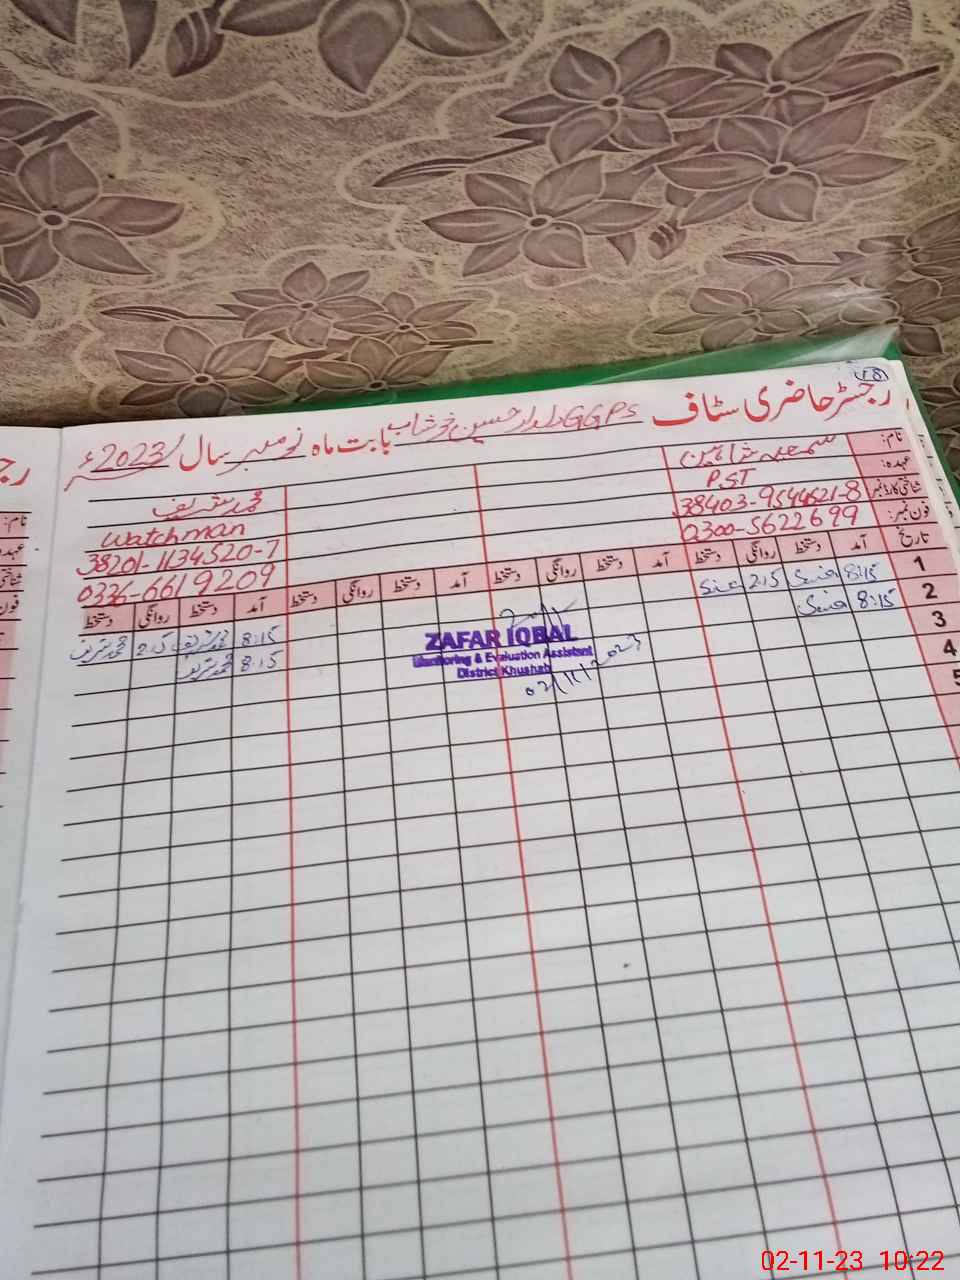 رجسٹر حاضری سٹاف GGPS دلدار حسین خوشاب بابت ماہ نومبر سال 2023ء
نام:
محمد شریف
عہدہ: PST
Watchman
شناختی کارڈ نمبر 38403-9544621-8
38201-1134520-7
فون نمبر: 0300-5622699
0336-6619209
تاریخ آمد دستخط روانگی دستخط آمد دستخط روانگی دستخط آمد دستخط روانگی دستخط آمد دستخط روانگی دستخط
1 8:15 2:15
8:15 محمد شریف 2:15 محمد شریف
2 8:15
8:15 محمد شریف
3
4
5
ZAFAR IQBAL
Monitoring & Evaluation Assistant
District Khushab
02/11/2023
02-11-23 10:22